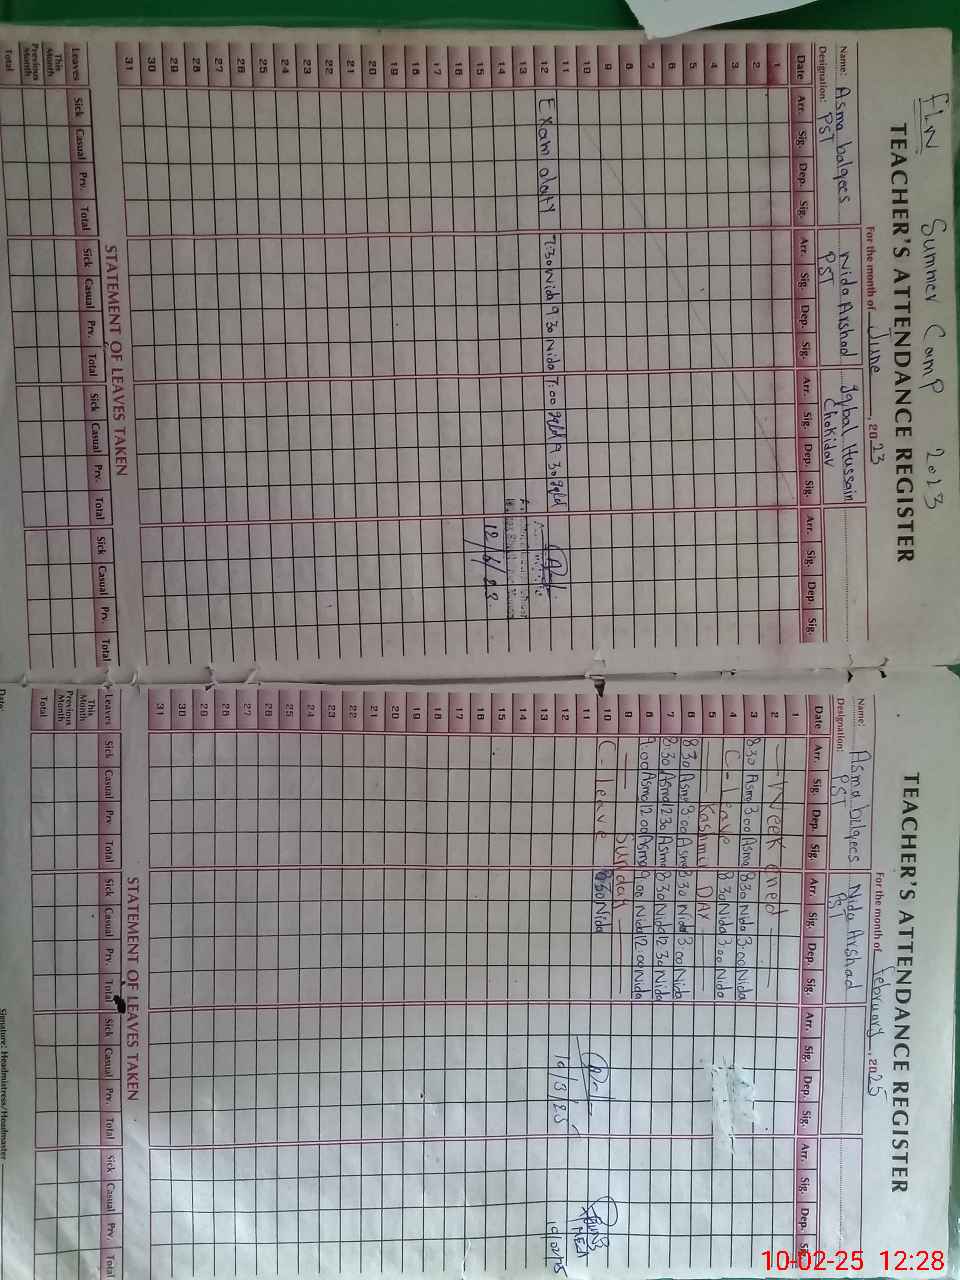 FLN Summer Camp 2023
TEACHER'S ATTENDANCE REGISTER
For the month of June, 2023
Name: Asma balqees Nida Arshad Iqbal Hussain
Designation: PST PST Chokidar
Date Arr. Sig. Dep. Sig. Arr. Sig. Dep. Sig. Arr. Sig. Dep. Sig. Arr. Sig. Dep. Sig.
1
2
3
4
5
6
7
8
9
10
11
12 Exam duty 7:30 Nida 9 30 Nida 7:00 Iqbl 9.30 Iqbl
13
14 12/6/23
15
16
17
18
19
20
21
22
23
24
25
26
27
28
29
30
31
STATEMENT OF LEAVES TAKEN
Leaves Sick Casual Prv. Total Sick Casual Prv. Total Sick Casual Prv. Total Sick Casual Prv. Total
This Month
Previous Month
Total
TEACHER'S ATTENDANCE REGISTER
For the month of February, 2025
Name: Asma bilqees Nida Arshad
Designation: PST PST
Date Arr. Sig. Dep. Sig. Arr. Sig. Dep. Sig. Arr. Sig. Dep. Sig. Arr. Sig. Dep. Sig.
1
2 Week ened
3 8 30 Asma 3:00 Asma 8 30 Nida 3:00 Nida
4 C-Leave 8 30 Nida 3:00 Nida
5 Kashmir DAY
6 8 30 Asma 3:00 Asma 8 30 Nida 3:00 Nida
7 8:30 Asma 12 30 Asma 8 30 Nida 12 30 Nida
8 9:00 Asma 12 00 Asma 9 00 Nida 12:00 Nida
9 Sunday
10 C-leave 8 30 Nida
11
12 10/3/25
13 10/02/25
14
15
16
17
18
19
20
21
22
23
24
25
26
27
28
29
30
31
STATEMENT OF LEAVES TAKEN
Leaves Sick Casual Prv. Total Sick Casual Prv. Total Sick Casual Prv. Total Sick Casual Prv. Total
This Month
Previous Month
Total
Date:
Signature: Headmistress/Headmaster
10-02-25 12:28